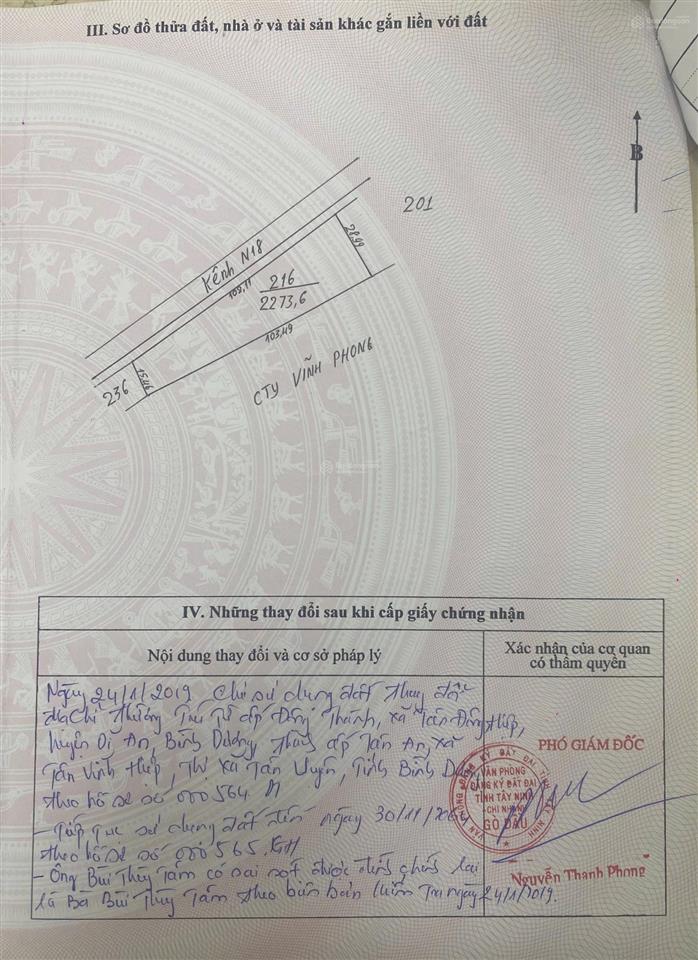 III. Sơ đồ thửa đất, nhà ở và tài sản khác gắn liền với đất
B
201
Kênh N18
28,99
109,11
216
2273,6
103,49
15,46
236
CTY VĨNH PHONG
IV. Những thay đổi sau khi cấp giấy chứng nhận
Nội dung thay đổi và cơ sở pháp lý
Xác nhận của cơ quan
có thẩm quyền
Ngày 24/1/2019, Chủ sử dụng đất thay đổi
địa chỉ thường trú từ ấp Đông Thành, xã Tân Đông Hiệp,
huyện Dĩ An, Bình Dương thành ấp Tân An, xã
Tân Vĩnh Hiệp, Thị xã Tân Uyên, Tỉnh Bình Dương
theo hồ sơ số 000564
- Tiếp tục sử dụng đất đến ngày 30/11/2064
theo hồ sơ số 000565.
- Ông Bùi Thùy Tâm có sai sót được đính chính lại
là Bà Bùi Thùy Tâm theo biên bản kiểm tra ngày 24/1/2019.
PHÓ GIÁM ĐỐC
VĂN PHÒNG
ĐĂNG KÝ ĐẤT ĐAI
TỈNH TÂY NINH
CHI NHÁNH
GÒ DẦU
Nguyễn Thanh Phong